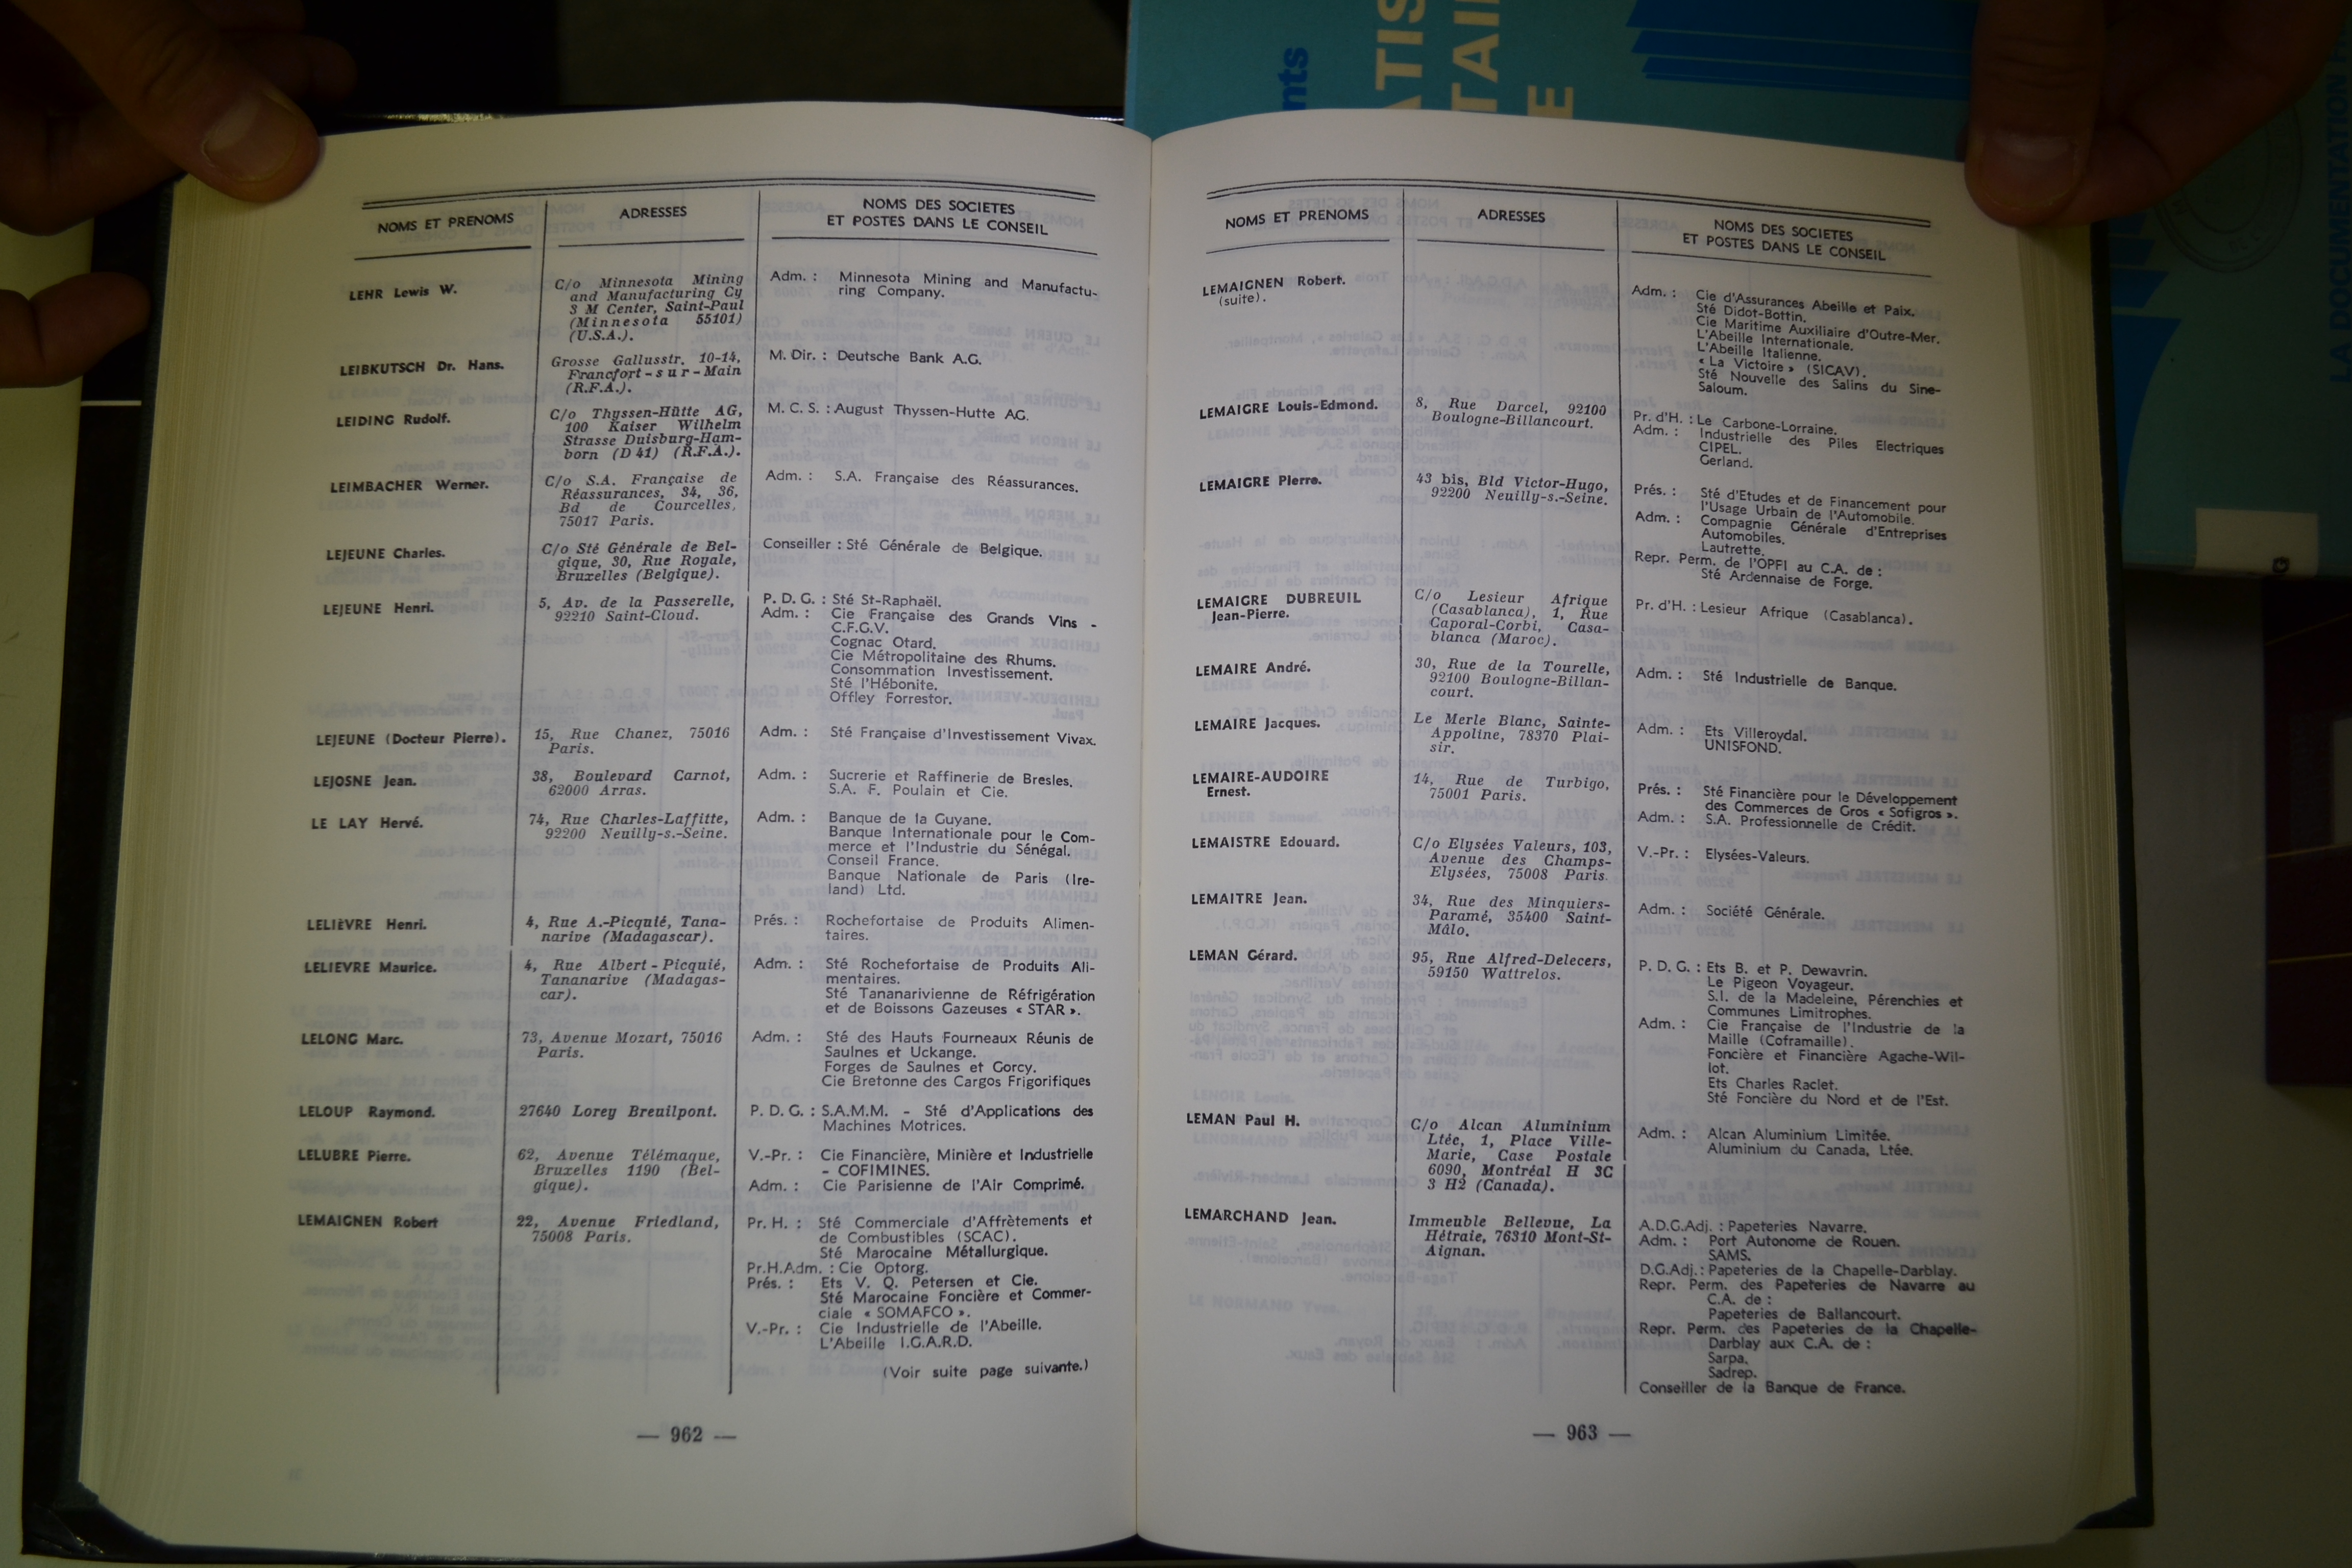 nts
ATIS
TAI
E
LA DOCUMENTATION
NOMS ET PRENOMS
ADRESSES
NOMS DES SOCIETES
ET POSTES DANS LE CONSEIL
LEHR Lewis W.
C/o Minnesota Mining
and Manufacturing Cy
3 M Center, Saint-Paul
(Minnesota 55101)
(U.S.A.).
Adm. : Minnesota Mining and Manufactu-
ring Company.
LEIBKUTSCH Dr. Hans.
Grosse Gallusstr. 10-14,
Francfort-sur-Main
(R.F.A.).
M. Dir. : Deutsche Bank A.G.
LEIDING Rudolf.
C/o Thyssen-Hütte AG,
100 Kaiser Wilhelm
Strasse Duisburg-Ham-
born (D 41) (R.F.A.).
M. C. S. : August Thyssen-Hutte AG.
LEIMBACHER Werner.
C/o S.A. Française de
Réassurances, 34, 36,
Bd de Courcelles,
75017 Paris.
Adm. : S.A. Française des Réassurances.
LEJEUNE Charles.
C/o Sté Générale de Bel-
gique, 30, Rue Royale,
Bruxelles (Belgique).
Conseiller : Sté Générale de Belgique.
LEJEUNE Henri.
5, Av. de la Passerelle,
92210 Saint-Cloud.
P. D. G. : Sté St-Raphaël.
Adm. : Cie Française des Grands Vins -
C.F.G.V.
Cognac Otard.
Cie Métropolitaine des Rhums.
Consommation Investissement.
Sté l'Hébonite.
Offley Forrestor.
LEJEUNE (Docteur Pierre).
15, Rue Chanez, 75016
Paris.
Adm. : Sté Française d'Investissement Vivax.
LEJOSNE Jean.
38, Boulevard Carnot,
62000 Arras.
Adm. : Sucrerie et Raffinerie de Bresles.
S.A. F. Poulain et Cie.
LE LAY Hervé.
74, Rue Charles-Laffitte,
92200 Neuilly-s.-Seine.
Adm. : Banque de la Guyane.
Banque Internationale pour le Com-
merce et l'Industrie du Sénégal.
Conseil France.
Banque Nationale de Paris (Ire-
land) Ltd.
LELIÈVRE Henri.
4, Rue A.-Picquié, Tana-
narive (Madagascar).
Prés. : Rochefortaise de Produits Alimen-
taires.
LELIEVRE Maurice.
4, Rue Albert-Picquié,
Tananarive (Madagas-
car).
Adm. : Sté Rochefortaise de Produits Ali-
mentaires.
Sté Tananarivienne de Réfrigération
et de Boissons Gazeuses « STAR ».
LELONG Marc.
73, Avenue Mozart, 75016
Paris.
Adm. : Sté des Hauts Fourneaux Réunis de
Saulnes et Uckange.
Forges de Saulnes et Gorcy.
Cie Bretonne des Cargos Frigorifiques
LELOUP Raymond.
27640 Lorey Breuilpont.
P. D. G. : S.A.M.M. - Sté d'Applications des
Machines Motrices.
LELUBRE Pierre.
62, Avenue Télémaque,
Bruxelles 1190 (Bel-
gique).
V.-Pr. : Cie Financière, Minière et Industrielle
- COFIMINES.
Adm. : Cie Parisienne de l'Air Comprimé.
LEMAIGNEN Robert
22, Avenue Friedland,
75008 Paris.
Pr. H. : Sté Commerciale d'Affrètements et
de Combustibles (SCAC).
Sté Marocaine Métallurgique.
Pr.H.Adm. : Cie Optorg.
Prés. : Ets V. Q. Petersen et Cie.
Sté Marocaine Foncière et Commer-
ciale « SOMAFCO ».
V.-Pr. : Cie Industrielle de l'Abeille.
L'Abeille I.G.A.R.D.
(Voir suite page suivante.)
— 962 —
NOMS ET PRENOMS
ADRESSES
NOMS DES SOCIETES
ET POSTES DANS LE CONSEIL
LEMAIGNEN Robert.
(suite).
Adm. : Cie d'Assurances Abeille et Paix.
Sté Didot-Bottin.
Cie Maritime Auxiliaire d'Outre-Mer.
L'Abeille Internationale.
L'Abeille Italienne.
« La Victoire » (SICAV).
Sté Nouvelle des Salins du Sine-
Saloum.
LEMAIGRE Louis-Edmond.
8, Rue Darcel, 92100
Boulogne-Billancourt.
Pr. d'H. : Le Carbone-Lorraine.
Adm. : Industrielle des Piles Electriques
CIPEL.
Gerland.
LEMAIGRE Pierre.
43 bis, Bld Victor-Hugo,
92200 Neuilly-s.-Seine.
Prés. : Sté d'Etudes et de Financement pour
l'Usage Urbain de l'Automobile.
Adm. : Compagnie Générale d'Entreprises
Automobiles.
Lautrette.
Repr. Perm. de l'OPFI au C.A. de :
Sté Ardennaise de Forge.
LEMAIGRE DUBREUIL
Jean-Pierre.
C/o Lesieur Afrique
(Casablanca), 1, Rue
Caporal-Corbi, Casa-
blanca (Maroc).
Pr. d'H. : Lesieur Afrique (Casablanca).
LEMAIRE André.
30, Rue de la Tourelle,
92100 Boulogne-Billan-
court.
Adm. : Sté Industrielle de Banque.
LEMAIRE Jacques.
Le Merle Blanc, Sainte-
Appoline, 78370 Plai-
sir.
Adm. : Ets Villeroydal.
UNISFOND.
LEMAIRE-AUDOIRE
Ernest.
14, Rue de Turbigo,
75001 Paris.
Prés. : Sté Financière pour le Développement
des Commerces de Gros « Sofigros ».
Adm. : S.A. Professionnelle de Crédit.
LEMAISTRE Edouard.
C/o Elysées Valeurs, 103,
Avenue des Champs-
Elysées, 75008 Paris.
V.-Pr. : Elysées-Valeurs.
LEMAITRE Jean.
34, Rue des Minquiers-
Paramé, 35400 Saint-
Mâlo.
Adm. : Société Générale.
LEMAN Gérard.
95, Rue Alfred-Delecers,
59150 Wattrelos.
P. D. G. : Ets B. et P. Dewavrin.
Le Pigeon Voyageur.
S.I. de la Madeleine, Pérenchies et
Communes Limitrophes.
Adm. : Cie Française de l'Industrie de la
Maille (Coframaille).
Foncière et Financière Agache-Wil-
lot.
Ets Charles Raclet.
Sté Foncière du Nord et de l'Est.
LEMAN Paul H.
C/o Alcan Aluminium
Ltée, 1, Place Ville-
Marie, Case Postale
6090, Montréal H 3C
3 H2 (Canada).
Adm. : Alcan Aluminium Limitée.
Aluminium du Canada, Ltée.
LEMARCHAND Jean.
Immeuble Bellevue, La
Hétraie, 76310 Mont-St-
Aignan.
A.D.G.Adj. : Papeteries Navarre.
Adm. : Port Autonome de Rouen.
SAMS.
D.G.Adj. : Papeteries de la Chapelle-Darblay.
Repr. Perm. des Papeteries de Navarre au
C.A. de :
Papeteries de Ballancourt.
Repr. Perm. des Papeteries de la Chapelle-
Darblay aux C.A. de :
Sarpa.
Sadrep.
Conseiller de la Banque de France.
— 963 —